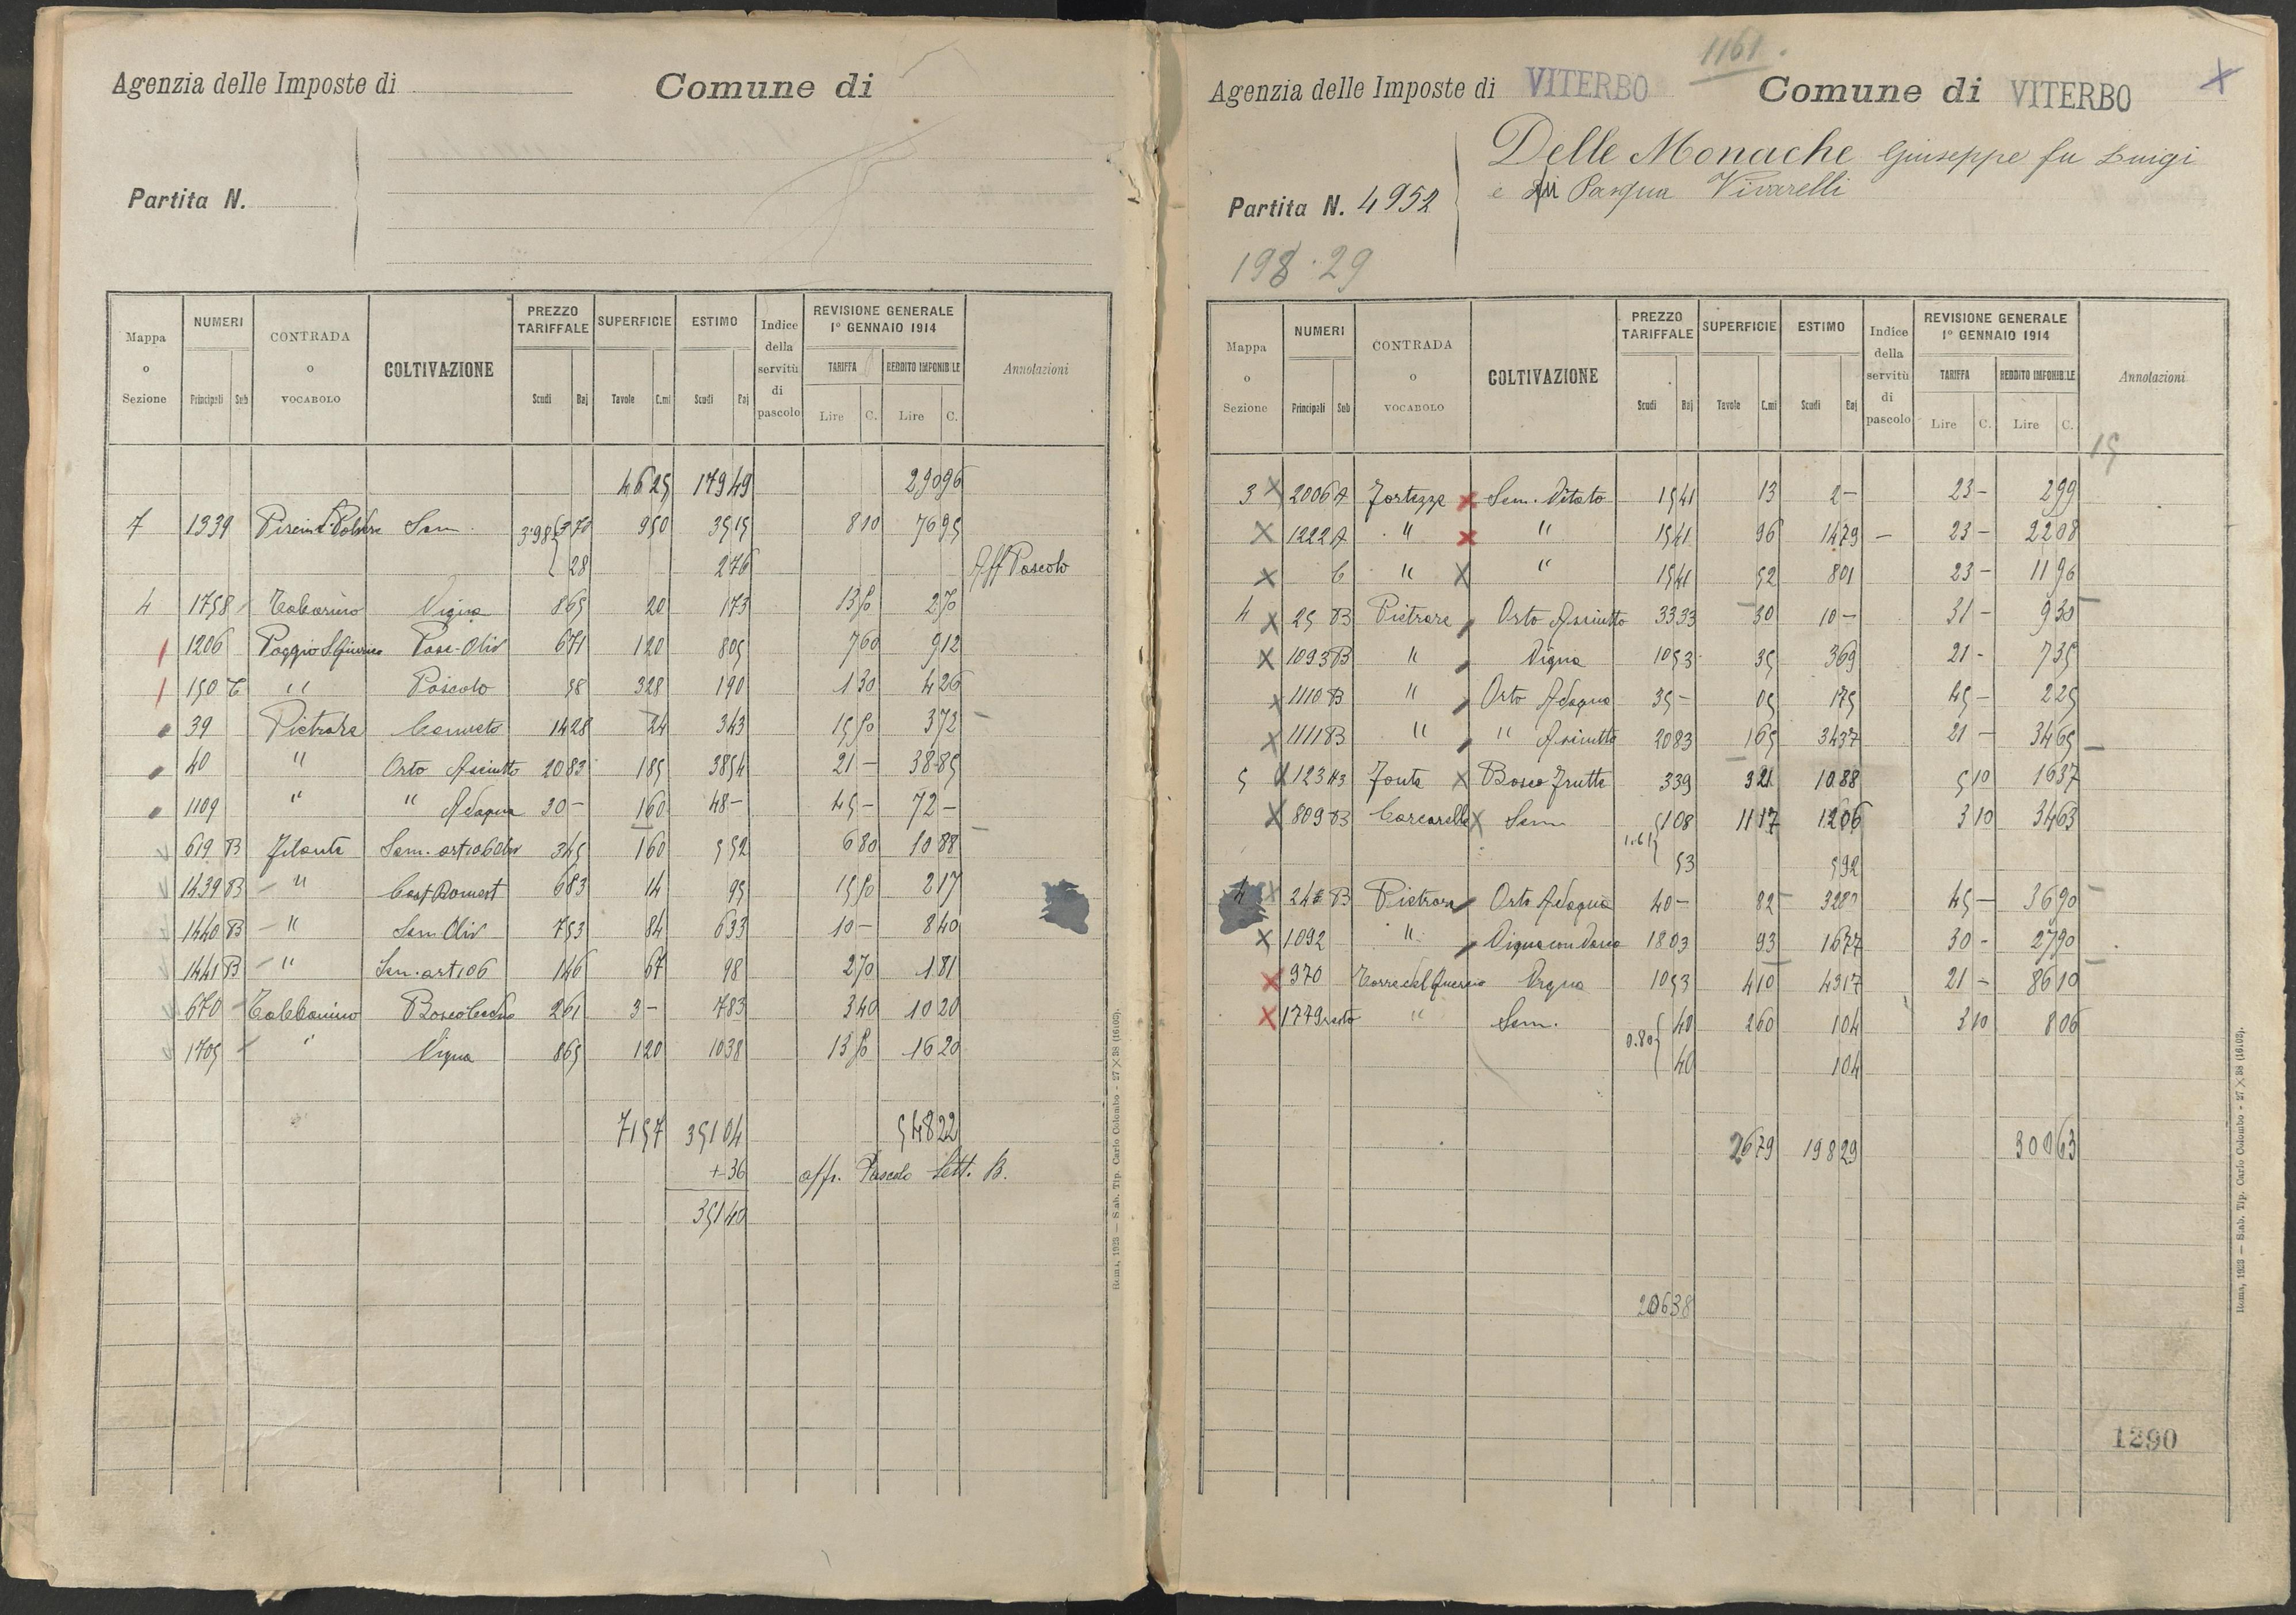 Agenzia delle Imposte di
Comune di
Partita N.
Mappa o Sezione | NUMERI Principali Sub | CONTRADA o VOCABOLO | COLTIVAZIONE | PREZZO TARIFFALE Scudi Baj | SUPERFICIE Tavole C.mi | ESTIMO Scudi Baj | Indice della servitù di pascolo | REVISIONE GENERALE 1° GENNAIO 1914 TARIFFA Lire C. REDDITO IMPONIBILE Lire C. | Annotazioni
4625 17949 29096
7 1339 Sem. 3.98 370 950 3515 810 7695
28 276 Aff Pascolo
4 1758 Vigna 865 20 173 1350 270
1206 Poggio Pasc-Oliv 671 120 805 760 912
150 " Pascolo 58 328 190 130 426
39 Pietrare Canneto 1428 24 343 1550 372 -
40 " Orto Asciutto 2083 185 3854 21 - 3885
1109 " " Adaqua 30 - 160 48 - 45 - 72 -
619 B Sem. art 106 Oliv 345 160 552 680 1088
1439 B " Cast Domest 683 14 95 1550 217
1440 B " Sem Oliv 753 84 633 10 - 840
1441 B " Sem. art 106 146 67 98 270 181
670 261 3 - 783 340 1020
1705 " Vigna 865 120 1038 1350 1620
7157 35104 54822
+36 aff. Pascolo Lett. B.
35140
Roma, 1923 — Stab. Tip. Carlo Colombo - 27 × 38 (16102).
1161.
Agenzia delle Imposte di VITERBO Comune di VITERBO X
Delle Monache Giuseppe fu Luigi
Partita N. 4952
e di Pasqua Vivarelli
198.29
Mappa o Sezione | NUMERI Principali Sub | CONTRADA o VOCABOLO | COLTIVAZIONE | PREZZO TARIFFALE Scudi Baj | SUPERFICIE Tavole C.mi | ESTIMO Scudi Baj | Indice della servitù di pascolo | REVISIONE GENERALE 1° GENNAIO 1914 TARIFFA Lire C. REDDITO IMPONIBILE Lire C. | Annotazioni
15
3 X 2006 A Fortezze X Sem. Vitato 1541 13 2 - 23 - 299
X 1222 A " X " 1541 96 1479 - 23 - 2208
X " X " 1541 52 801 23 - 1196
4 X 25 B Pietrare Orto Asciutto 3333 30 10 - 31 - 930
X 1093 B " Vigna 1053 35 369 21 - 735
X 1110 B " Orto Adaqua 35 - 05 175 45 - 225
X 1111 B " " Asciutto 2083 165 3437 21 - 3465
5 X 123 Fonte X Bosco Frutte 339 321 1088 510 1637
X 809 B Carcarelle X Sem 108 1117 1206 310 3463
1.61 53 592
4 X B Pietrare Orto Adaqua 40 - 82 3280 45 - 3690
X 1092 " Vigna con Vasca 1803 93 1677 30 - 2790
X 970 Torre del Quercio Vigna 1053 410 4317 21 - 8610
X 1779 resto " Sem. 40 260 104 310 806
0.80 40 104
2679 19829 30063
20638
1290
Roma, 1923 — Stab. Tip. Carlo Colombo - 27 × 38 (16102).